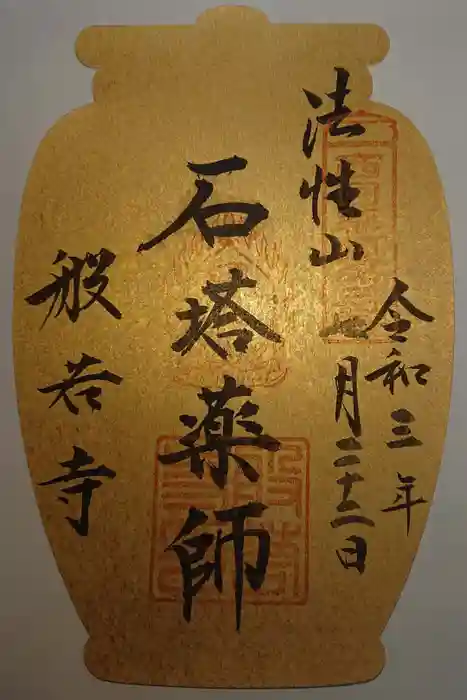 法性山
令和三年
一月二十二日
石塔薬師
般若寺